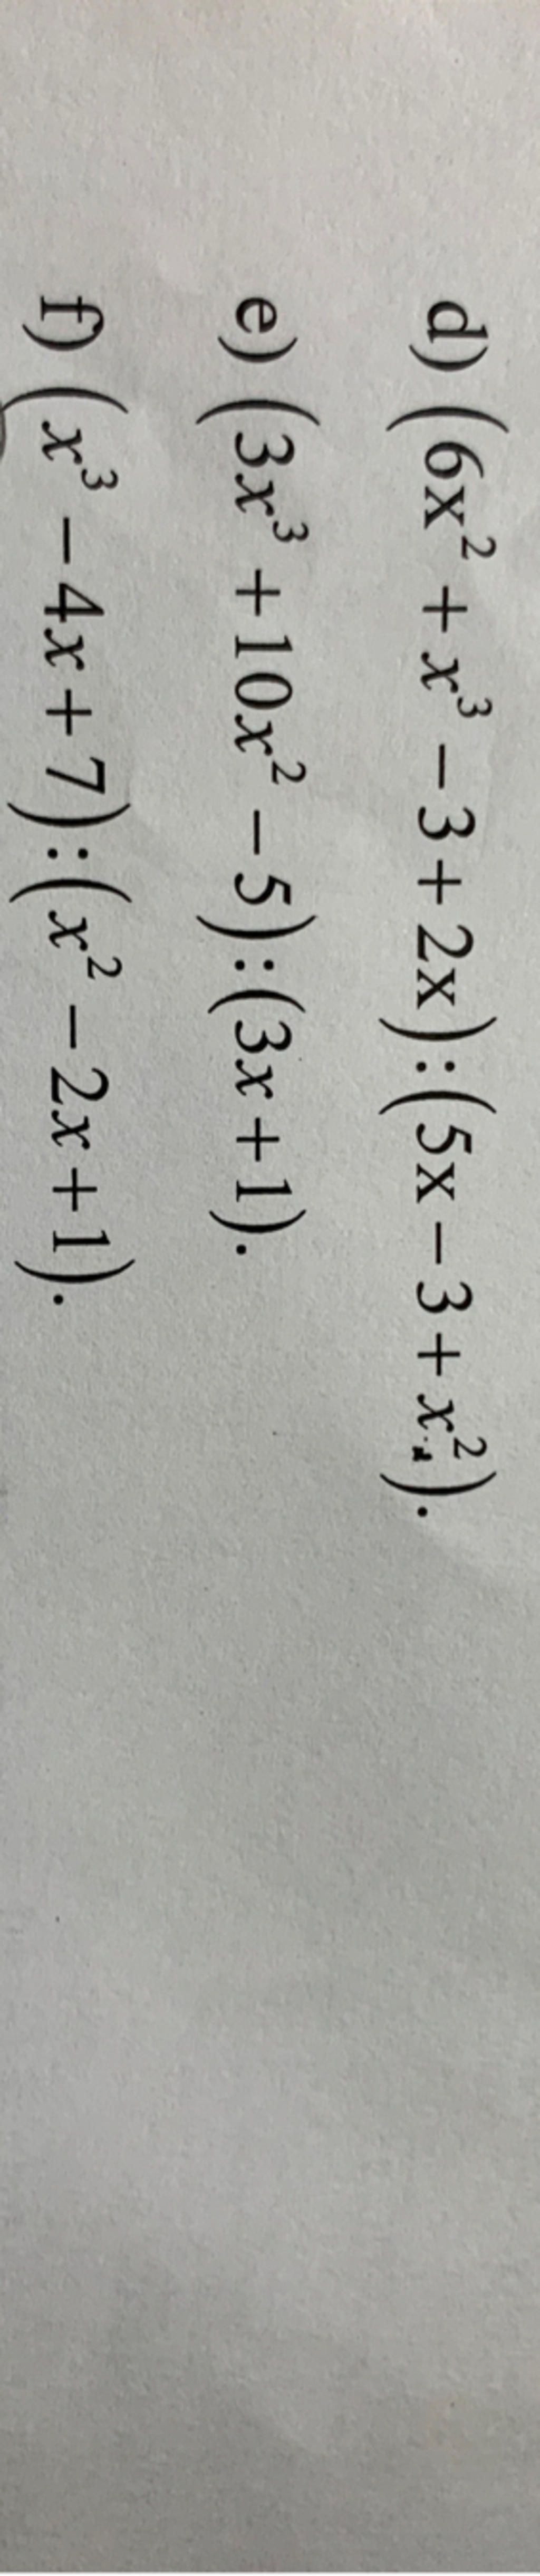 d) (6x² + x³ − 3 + 2x) : (5x − 3 + x²).
e) (3x³ + 10x² − 5) : (3x + 1).
f) (x³ − 4x + 7) : (x² − 2x + 1).